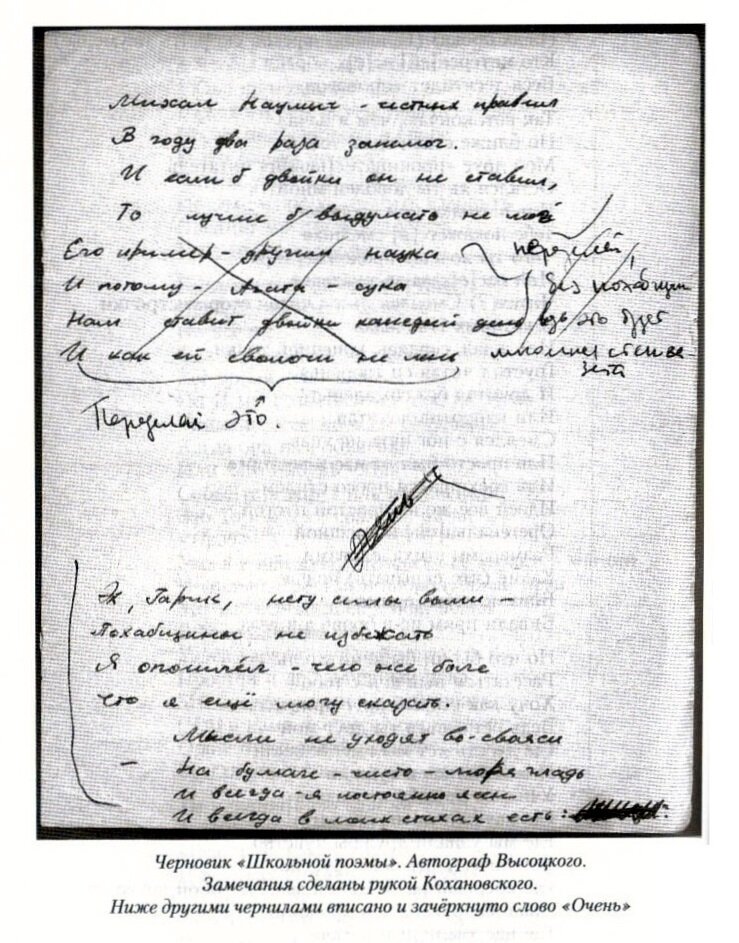 Михал Наумыч - честных правил
В году два раза занемог.
И если б двойки он не ставил,
То лучше б выдумать не мог
Его пример - другим наука
И потому - Агата - сука
Нам ставит двойки каждый день
И как ей сволочи не лень
переделай,
без похабщин
ведь это будет
многих стенгазета
Переделай это.
Эх, Гарик, нету силы воли -
Похабщины не избежать
Я опошлел - чего же боле
Что я ещё могу сказать.
Мысли не уходят во-свояси
- На бумаге - чисто - моря гладь
И всегда - я постоянно ясен
И всегда в моих стихах есть:
Черновик «Школьной поэмы». Автограф Высоцкого.
Замечания сделаны рукой Кохановского.
Ниже другими чернилами вписано и зачёркнуто слово «Очень»